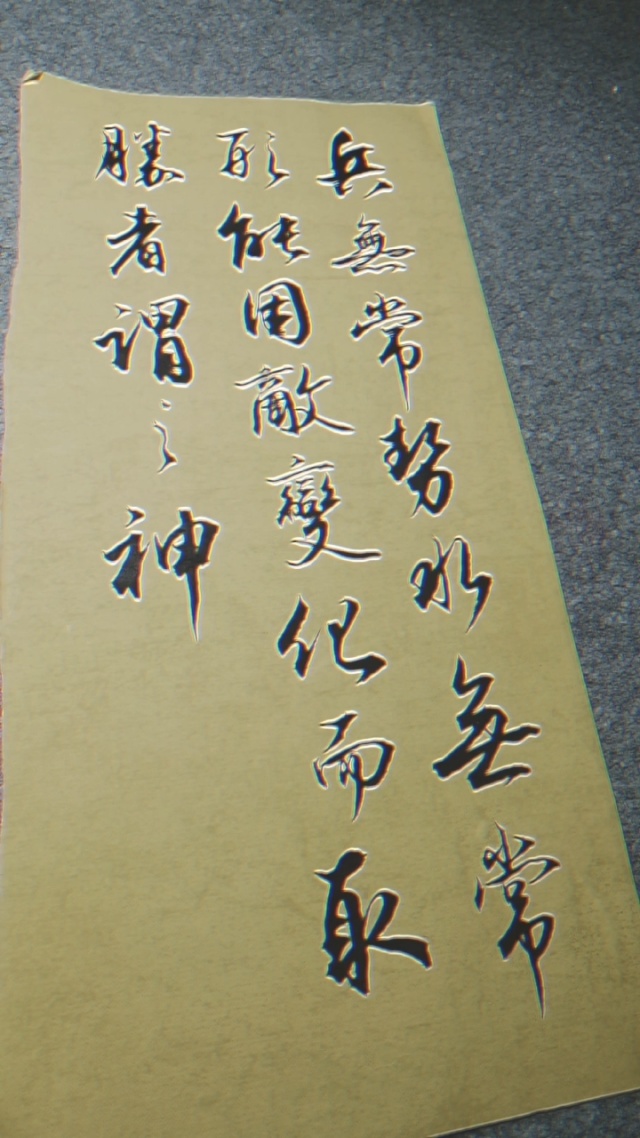 兵無常勢水無常
形能因敵變化而取
勝者謂之神